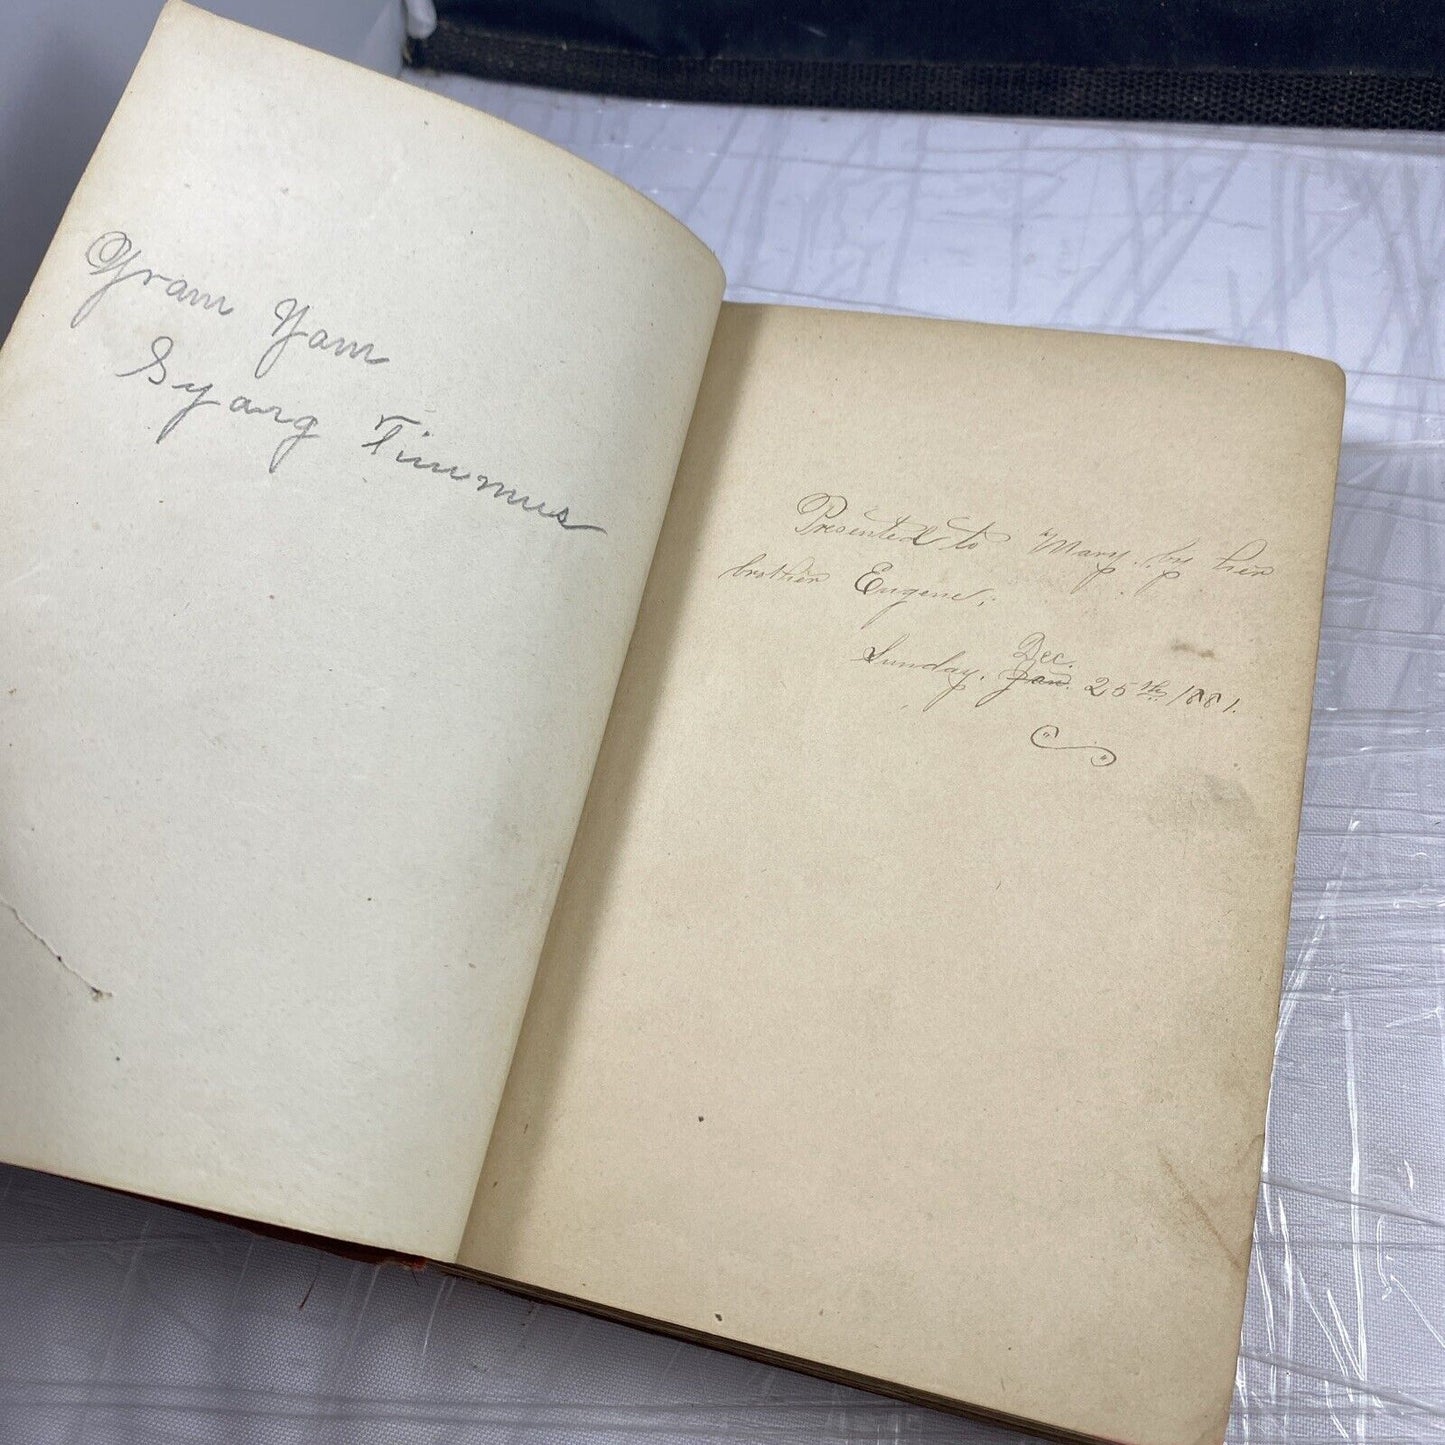 Yram Yam
Syang Timmus
Presented to "Mary", by her
brother Eugene;
Dec.
Sunday, Jan. 25th, 1881.